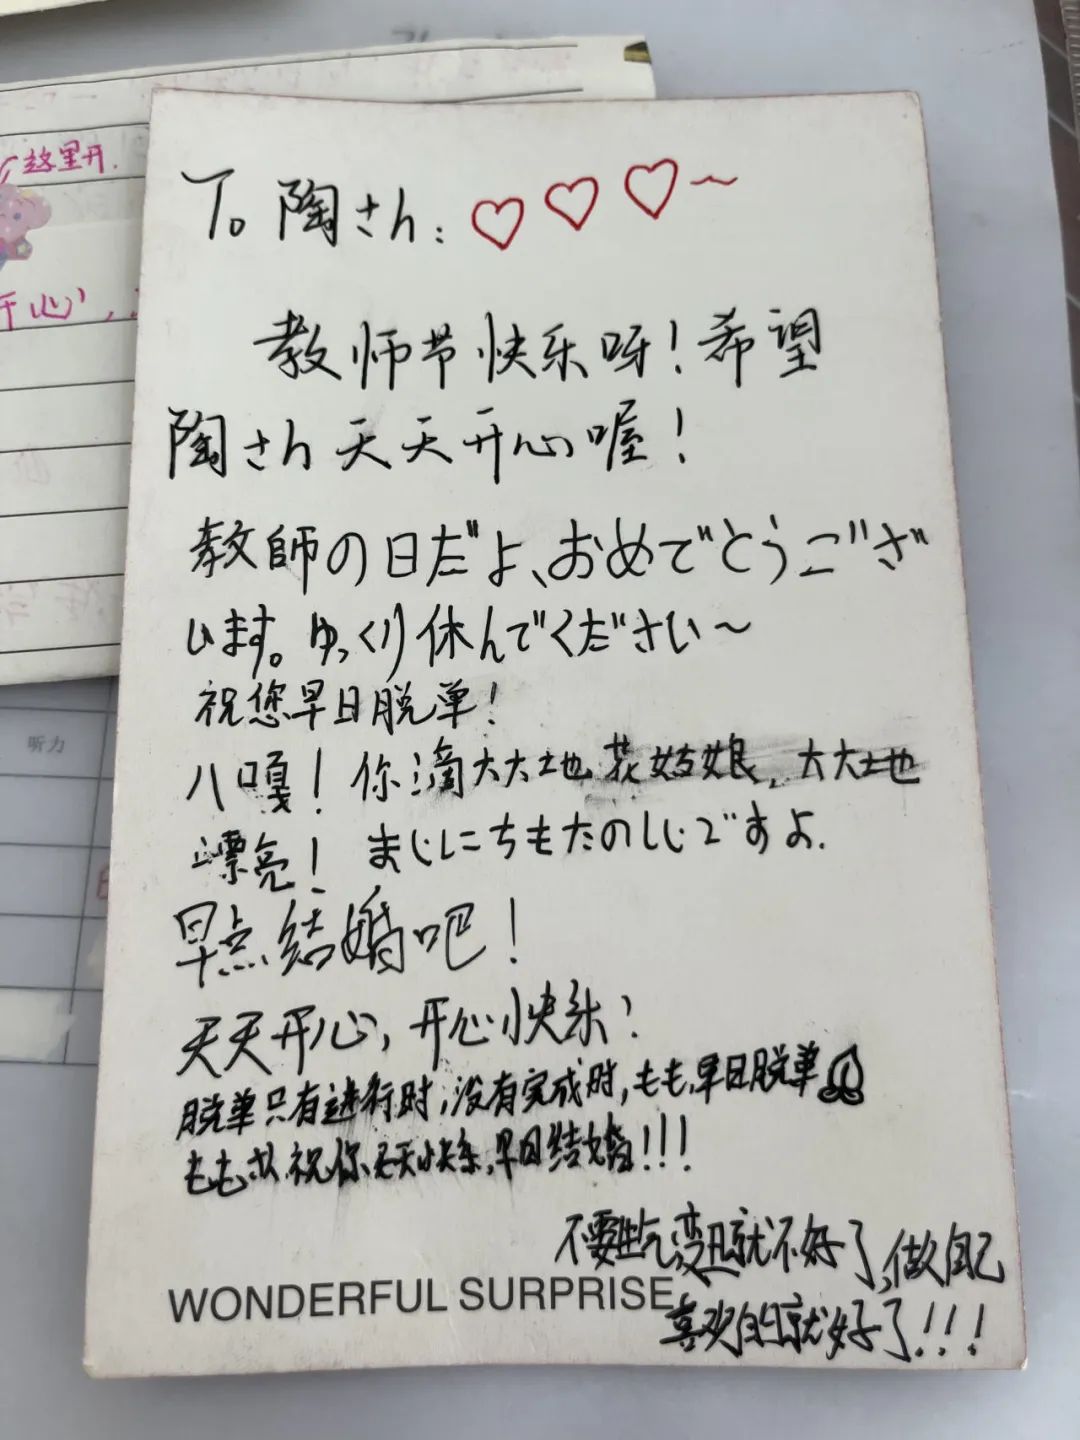 这里开.
开心，
听力
To 陶さん: ♡♡♡~
教师节快乐呀！希望
陶さん天天开心喔！
教師の日だよ、おめでとうござ
います。ゆっくり休んでください～
祝您早日脱单！
八嘎！你滴大大地花姑娘，大大地
漂亮！まじにちもたのしじですよ.
早点结婚吧！
天天开心，开心快乐！
脱单只有进行时，没有完成时，もも，早日脱单
ももさん祝你天天快乐，早日结婚！！！
不要生气，变丑就不好了，做自己
喜欢的就好了！！！
WONDERFUL SURPRISE